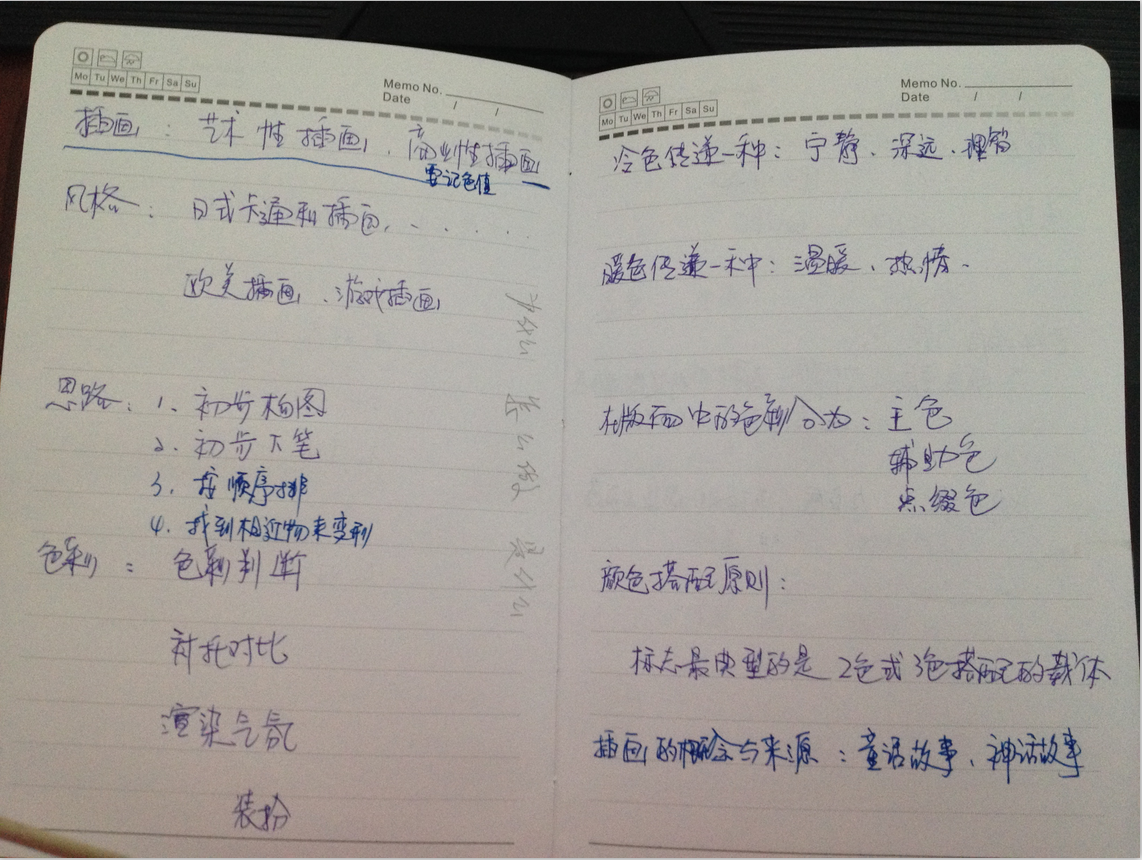 Mo Tu We Th Fr Sa Su
Memo No.
Date / /
插画：艺术性插画、商业性插画
要记色值
风格：日式卡通和插画、......
欧美插画、游戏插画
思路：1、初步构图
2、初步下笔
3、按顺序排
4、找到相近物来变形
色彩：色彩判断
衬托对比
渲染气氛
装扮
为什么
怎么做
是什么
Mo Tu We Th Fr Sa Su
Memo No.
Date / /
冷色传递一种：宁静、深远、理智
暖色传递一种：温暖、热情、
在版面中的色彩分为：主色
辅助色
点缀色
颜色搭配原则：
标志最典型的是2色或3色搭配的载体
插画的概念与来源：童话故事、神话故事